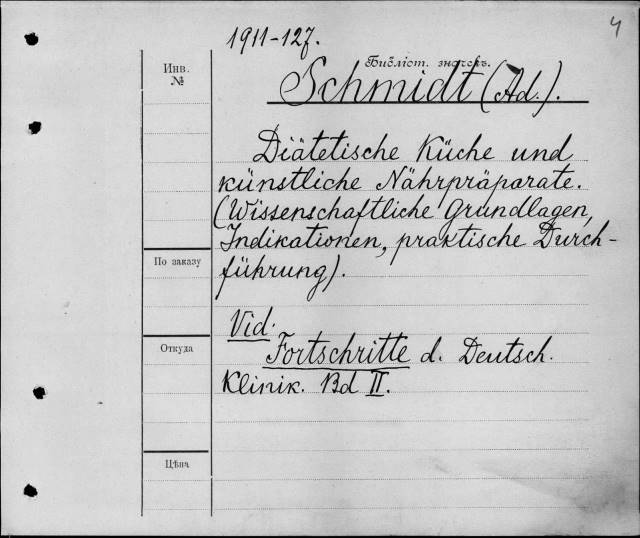 4
1911-127.
Библіот. значекъ.
Инв. №
Schmidt (Ad.).
Diätetische Küche und
künstliche Nährpräparate.
(Wissenschaftliche Grundlagen,
Indikationen, praktische Durch-
führung).
По заказу
Vid.
Откуда
Fortschritte d. Deutsch.
Klinik. Bd II.
Цѣна